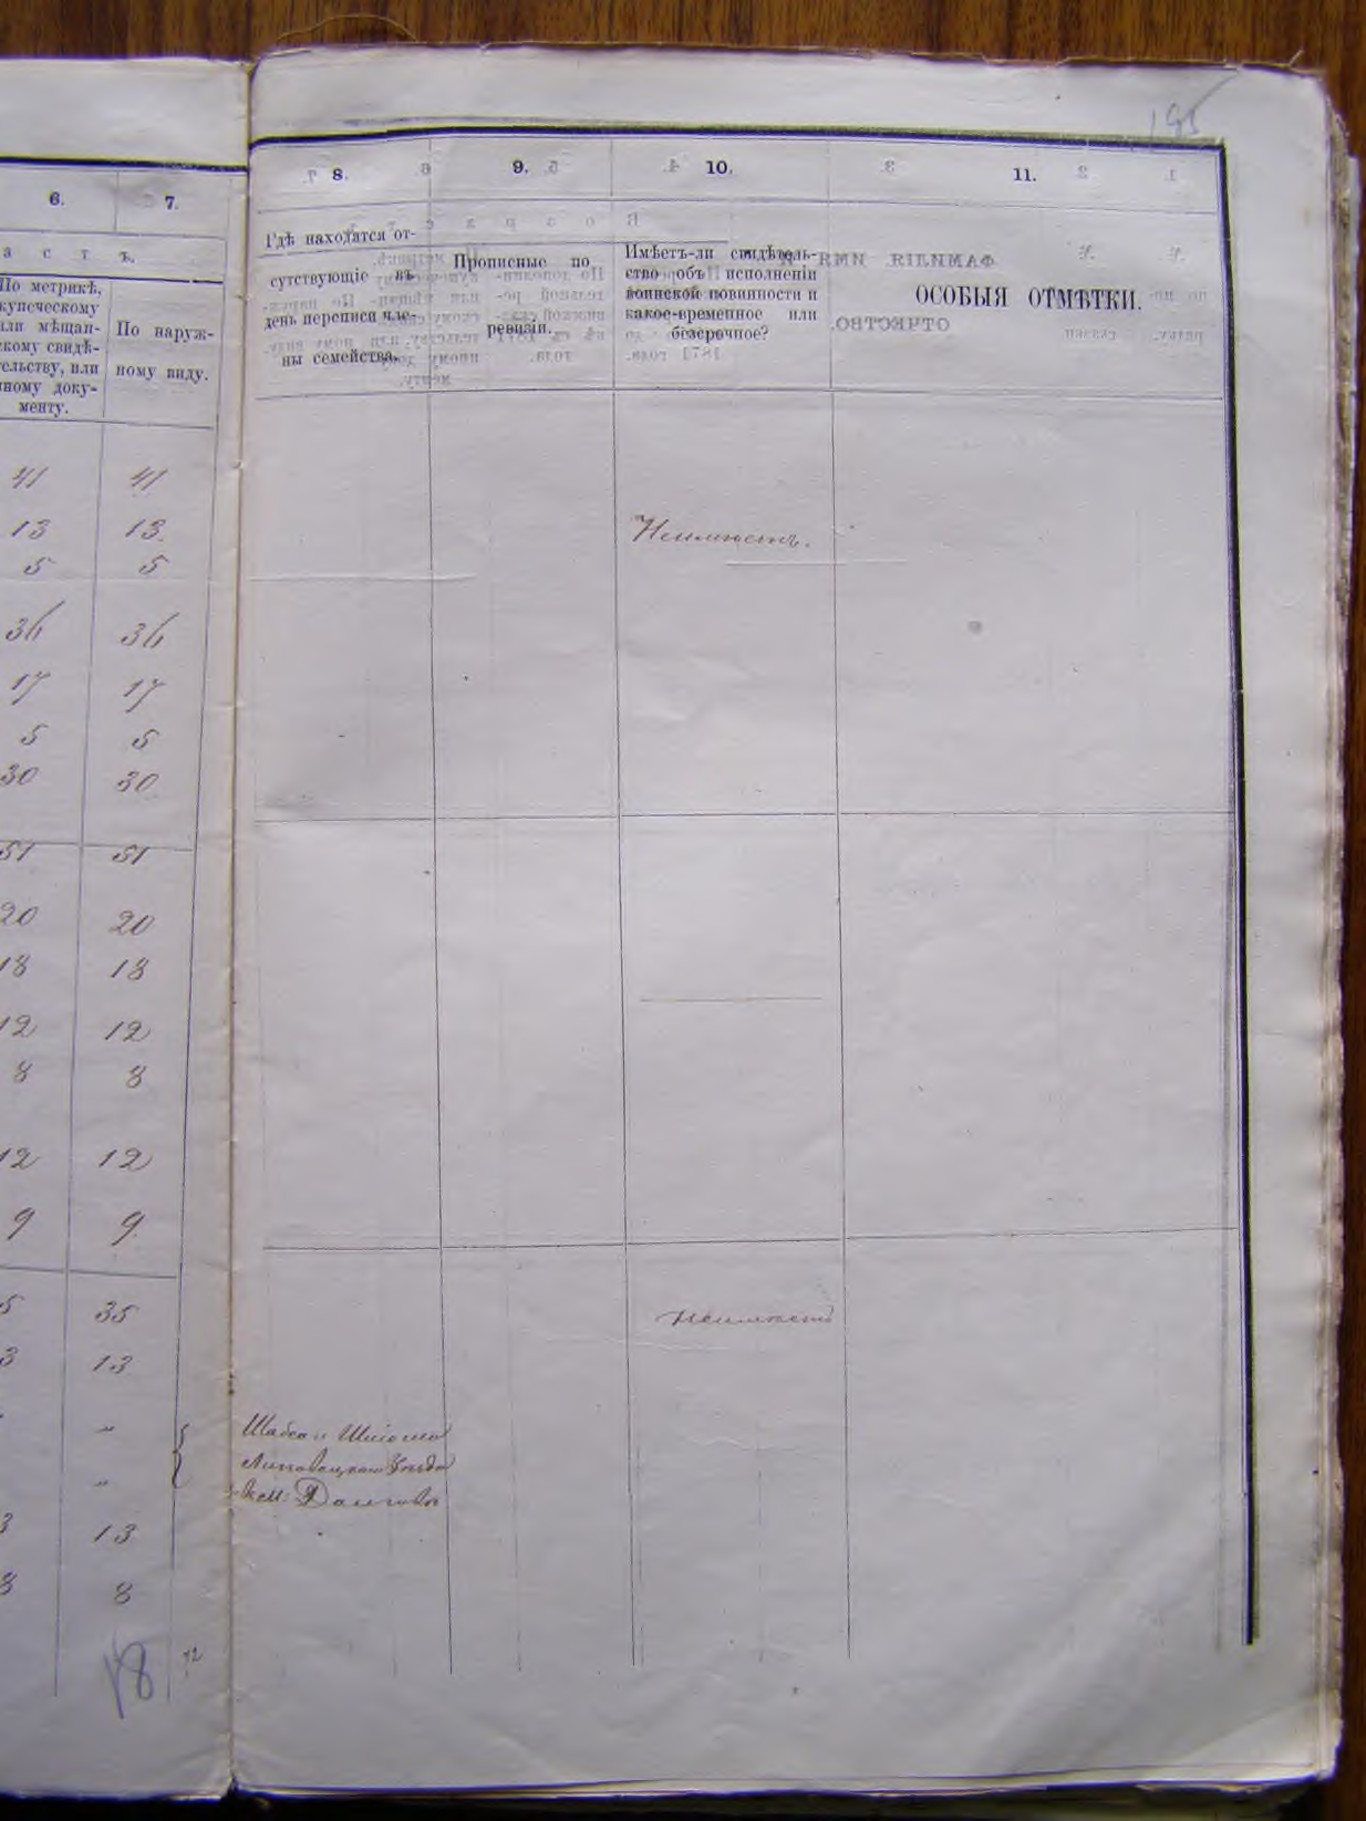 195
6.
7.
а с т ъ.
По метрикѣ,
купеческому
или мѣщан-
скому свидѣ-
тельству, или
иному доку-
менту.
По наруж-
ному виду.
41 41
13 13
5 5
36 36
17 17
5 5
30 30
51 51
20 20
18 18
12 12
8 8
12 12
9 9
5 35
3 13
" "
"
3 13
8 8
18
8.
9.
10.
11.
Гдѣ находятся от-
сутствующіе въ
день переписи чле-
ны семейства.
Прописные по
ревизіи.
Имѣетъ-ли свидѣтель-
ство объ исполненіи
воинской повинности и
какое-временное или
безсрочное?
ОСОБЫЯ ОТМѢТКИ.
Неимѣетъ.
неимѣетъ
Шабса и Шліома
Липовецкаго уѣзда